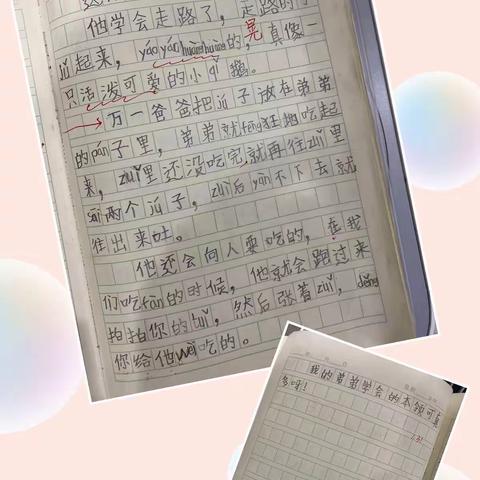 他学会走路了，走路时
jǔ起来，yáo yáo huàng huàng的，真像一
晃
只活泼可爱的小qǐ鹅。
万一爸爸把jú子放在弟弟
的pán子里，弟弟就fēng狂地吃起
来，zuǐ里还没吃完，就再往zuǐ里
sāi两个jú子，zuì后yàn不下去就
往出来吐。
他还会向人要吃的，在我
们吃fàn的时候，他就会跑过来
拍拍你的tuǐ，然后张着zuǐ，děng
你给他wèi吃的。
我的弟弟学会的本领可真
多呀！